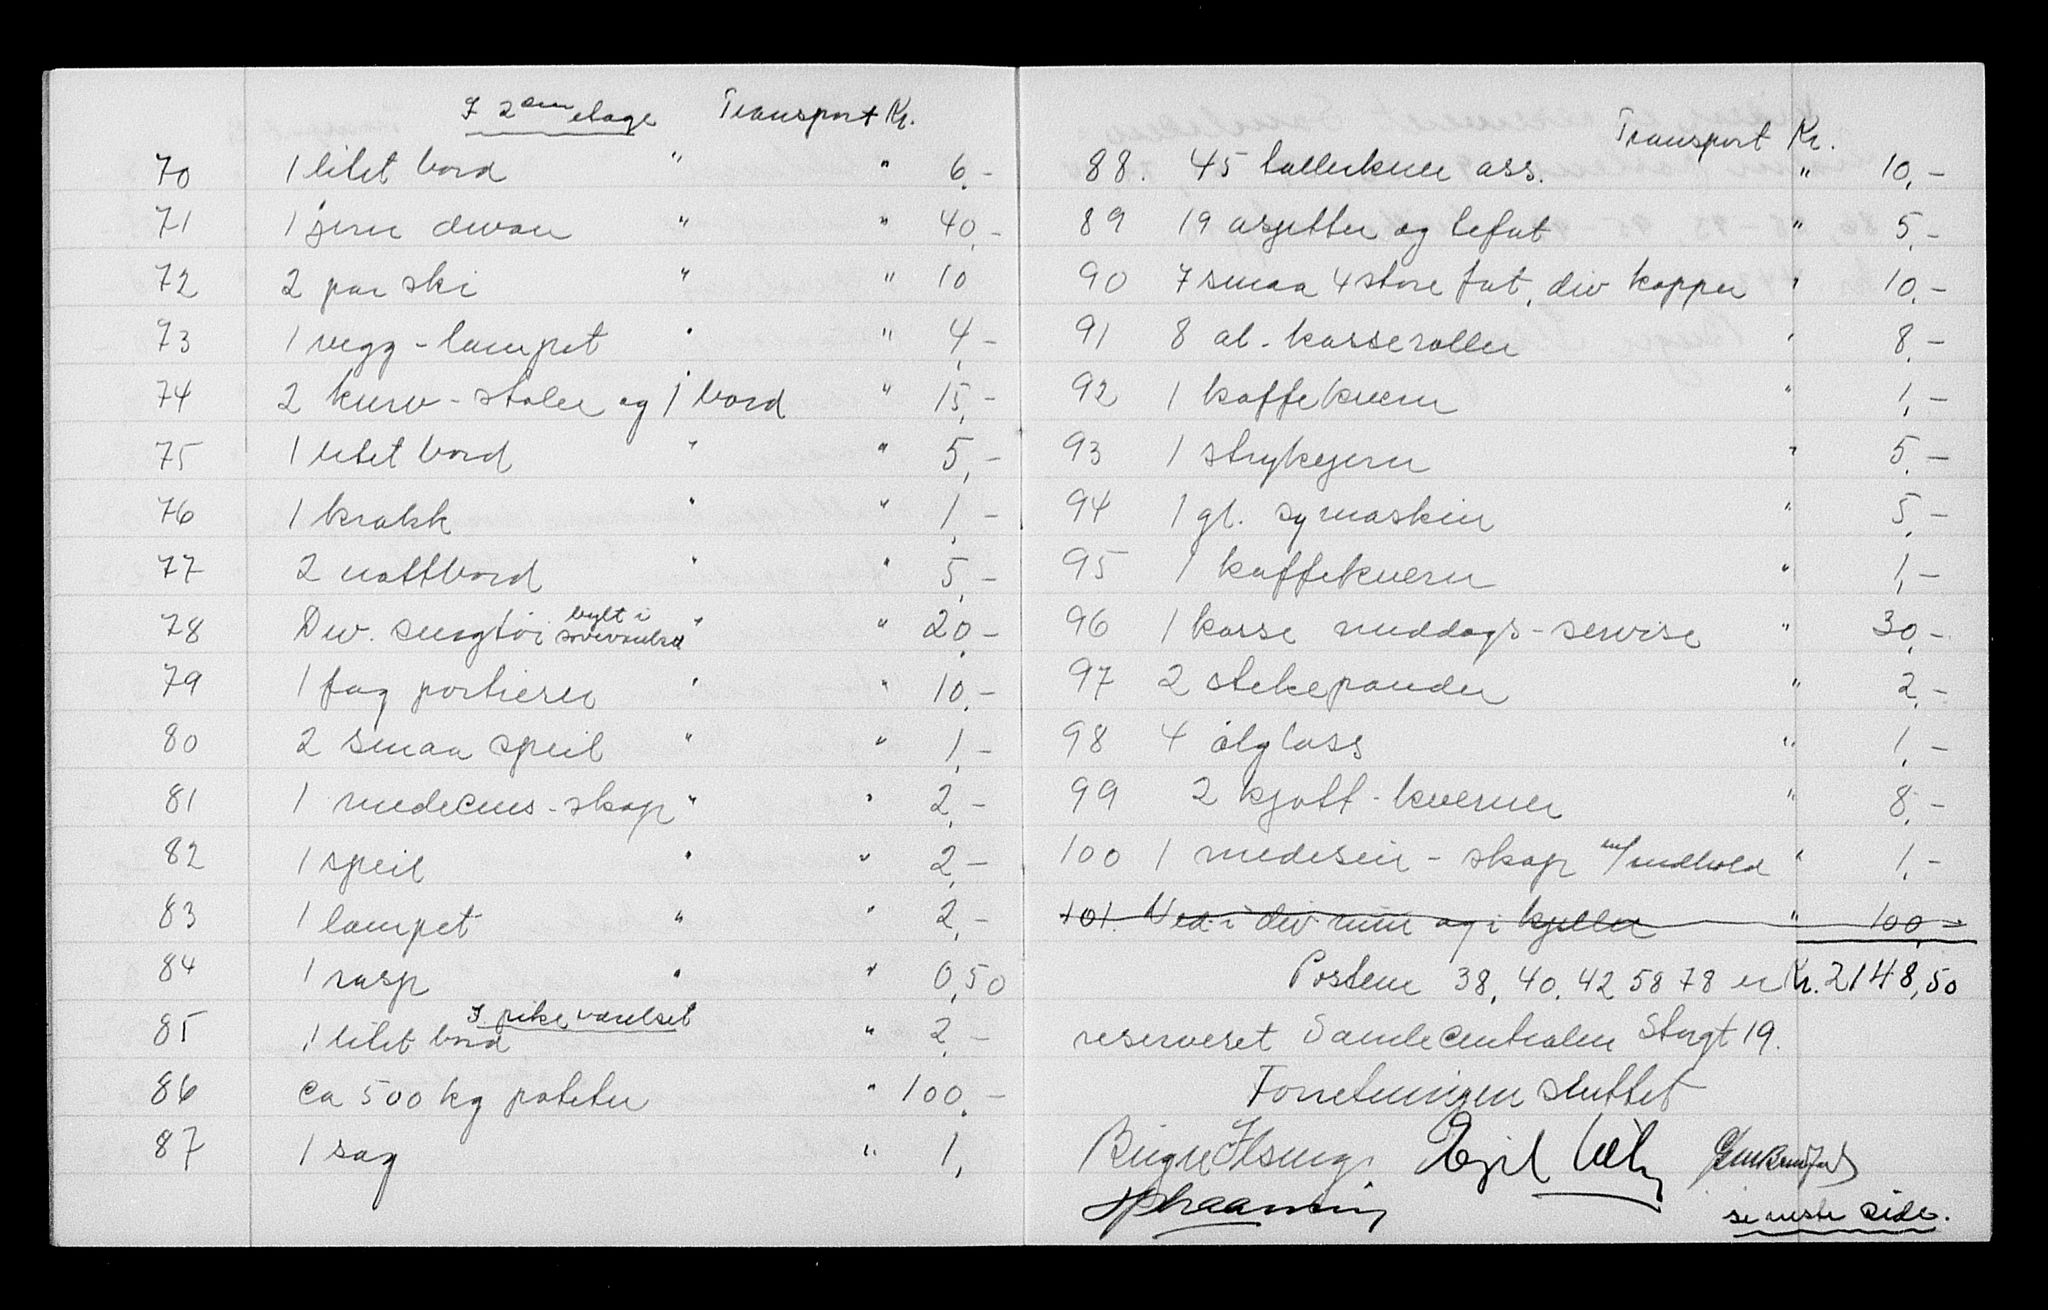 I 2den etage Transport Kr.
70 1 litet bord " " 6,-
71 1 jern divan " " 40,-
72 2 par ski " " 10
73 1 vegg-lampet " " 4,-
74 2 kurv-stoler og 1 bord " 15,-
75 1 litet bord " " 5,-
76 1 krakk " " 1,-
77 2 nattbord " " 5,-
78 Div. sengtøi bylt i soveværelse " " 20,-
79 1 fag portierer " " 10,-
80 2 smaa speil " " 1,-
81 1 medecins-skap " " 2,-
82 1 speil " " 2,-
83 1 lampet " " 2,-
84 1 rasp " " 0,50
I pikeværelset
85 1 litet bord " 2,-
86 ca 500 kg poteter " 100,-
87 1 sag " 1,
Transport Kr.
88. 45 tallerkner ass. " 10,-
89 19 asjetter og tefat " 5,-
90 7 smaa 4 store fat, div kopper " 10,-
91 8 al-kasseroller " 8,-
92 1 kaffekvern " 1,-
93 1 strykejern " 5,-
94 1 gl. symaskin " 5,-
95 1 kaffekvern " 1,-
96 1 kasse middags-servise " 30,-
97 2 stekepander " 2,-
98 4 ølglass " 1,-
99 2 kjøtt-kverner " 8,-
100 1 medisin-skap m/indhold " 1,-
101. Ved i div rum og i kjeller " 100,-
Postene 38, 40, 42 58 78 er Kr. 2148,50
reserveret Samlecentralen Storgt 19.
Forretningen sluttet
Egil
se neste side.